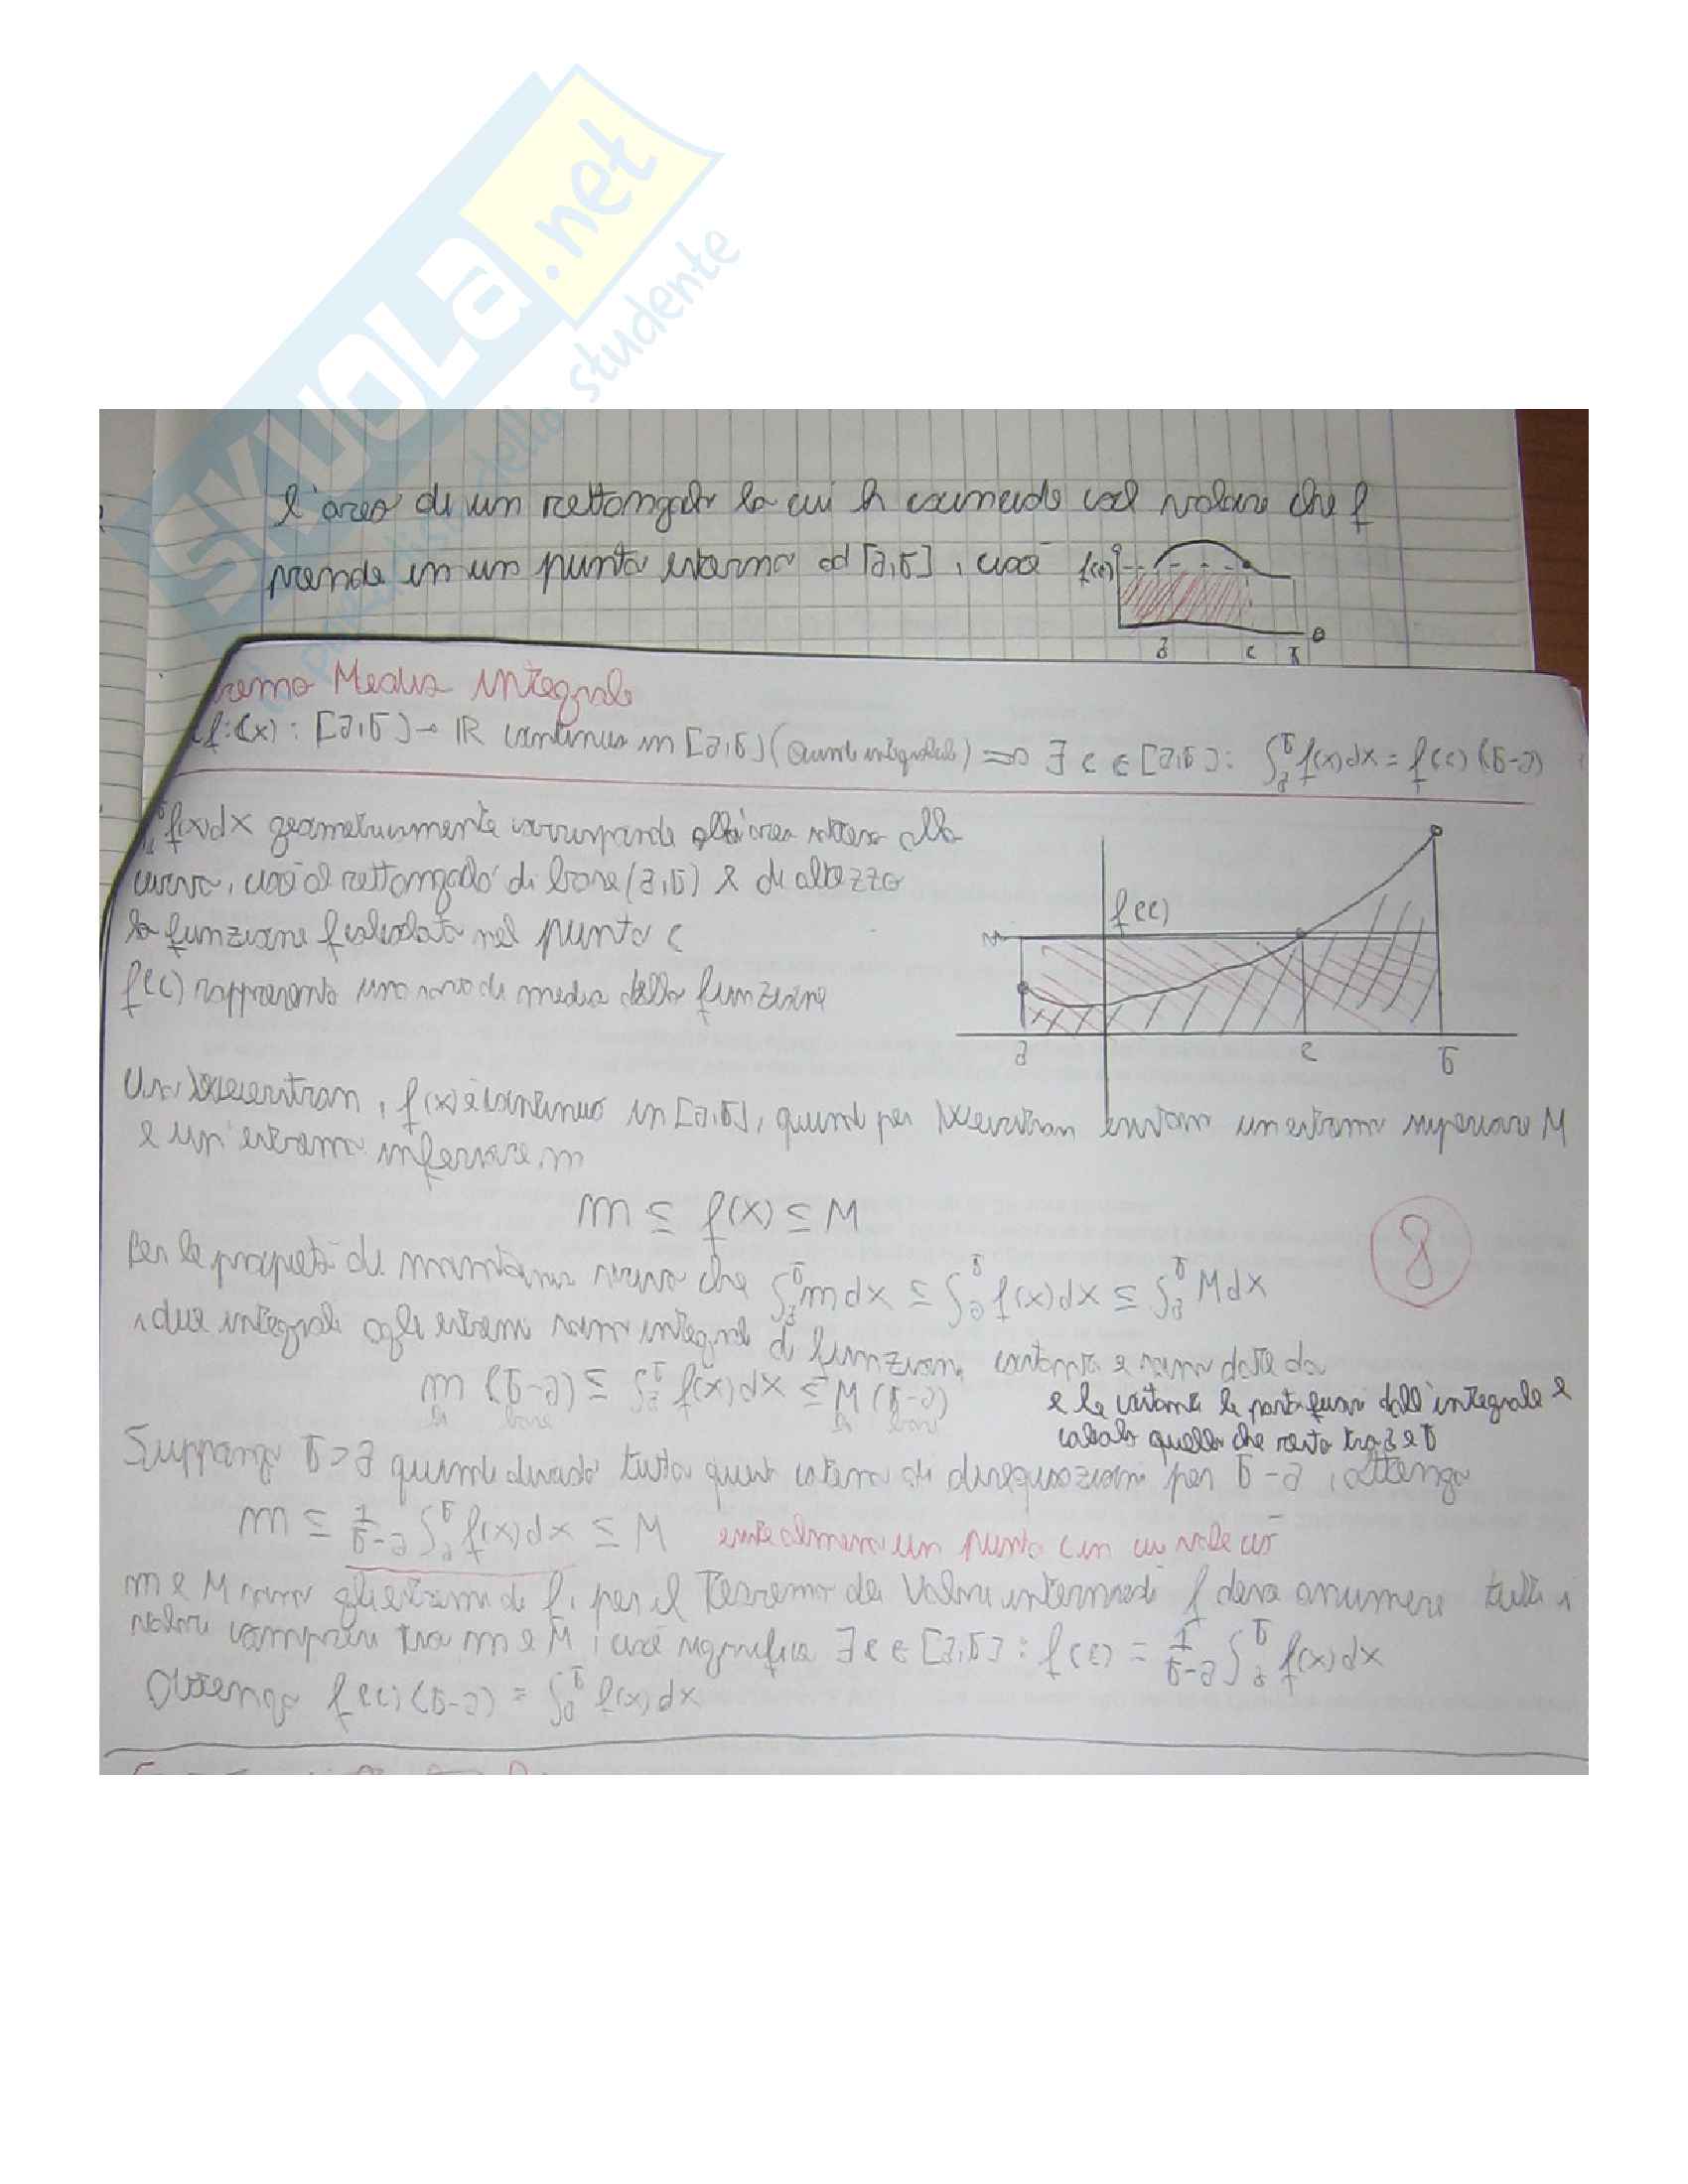 SKUOLA.net
studente
l'area di un rettangolo la cui h coincide col valore che f
prende in un punto interno ad [a,b], cioè
f(c)
a c b
Media integrale
f(x): [a,b] → ℝ continua in [a,b] (quindi integrabile) ⇒ ∃ c ∈ [a,b]: ∫_a^b f(x)dx = f(c)(b-a)
f(x)dx geometricamente corrisponde all'area sottesa alla
curva, cioè al rettangolo di base (a,b) e di altezza
la funzione f calcolata nel punto c
f(c) rappresenta una sorta di media della funzione
f(c)
a c b
Uso Weierstrass, f(x) è continua in [a,b], quindi per Weierstrass esistono un estremo superiore M
e un'estremo inferiore m
m ≤ f(x) ≤ M
Per le proprietà di monotonia scrivo che ∫_a^b m dx ≤ ∫_a^b f(x)dx ≤ ∫_a^b M dx
8
i due integrali agli estremi sono integrali di funzioni costanti e sono date da
m (b-a) ≤ ∫_a^b f(x)dx ≤ M (b-a)
h base h base
e le costanti le porto fuori dall'integrale e
calcolo quello che resta tra a e b
Suppongo b>a quindi divido tutta questa catena di disequazioni per b-a, ottengo
m ≤ 1/(b-a) ∫_a^b f(x)dx ≤ M esiste almeno un punto c in cui vale ciò
m e M sono gli estremi di f, per il Teorema dei Valori intermedi f deve assumere tutti i
valori compresi tra m e M, cioè significa ∃ c ∈ [a,b]: f(c) = 1/(b-a) ∫_a^b f(x)dx
Ottengo f(c)(b-a) = ∫_a^b f(x)dx